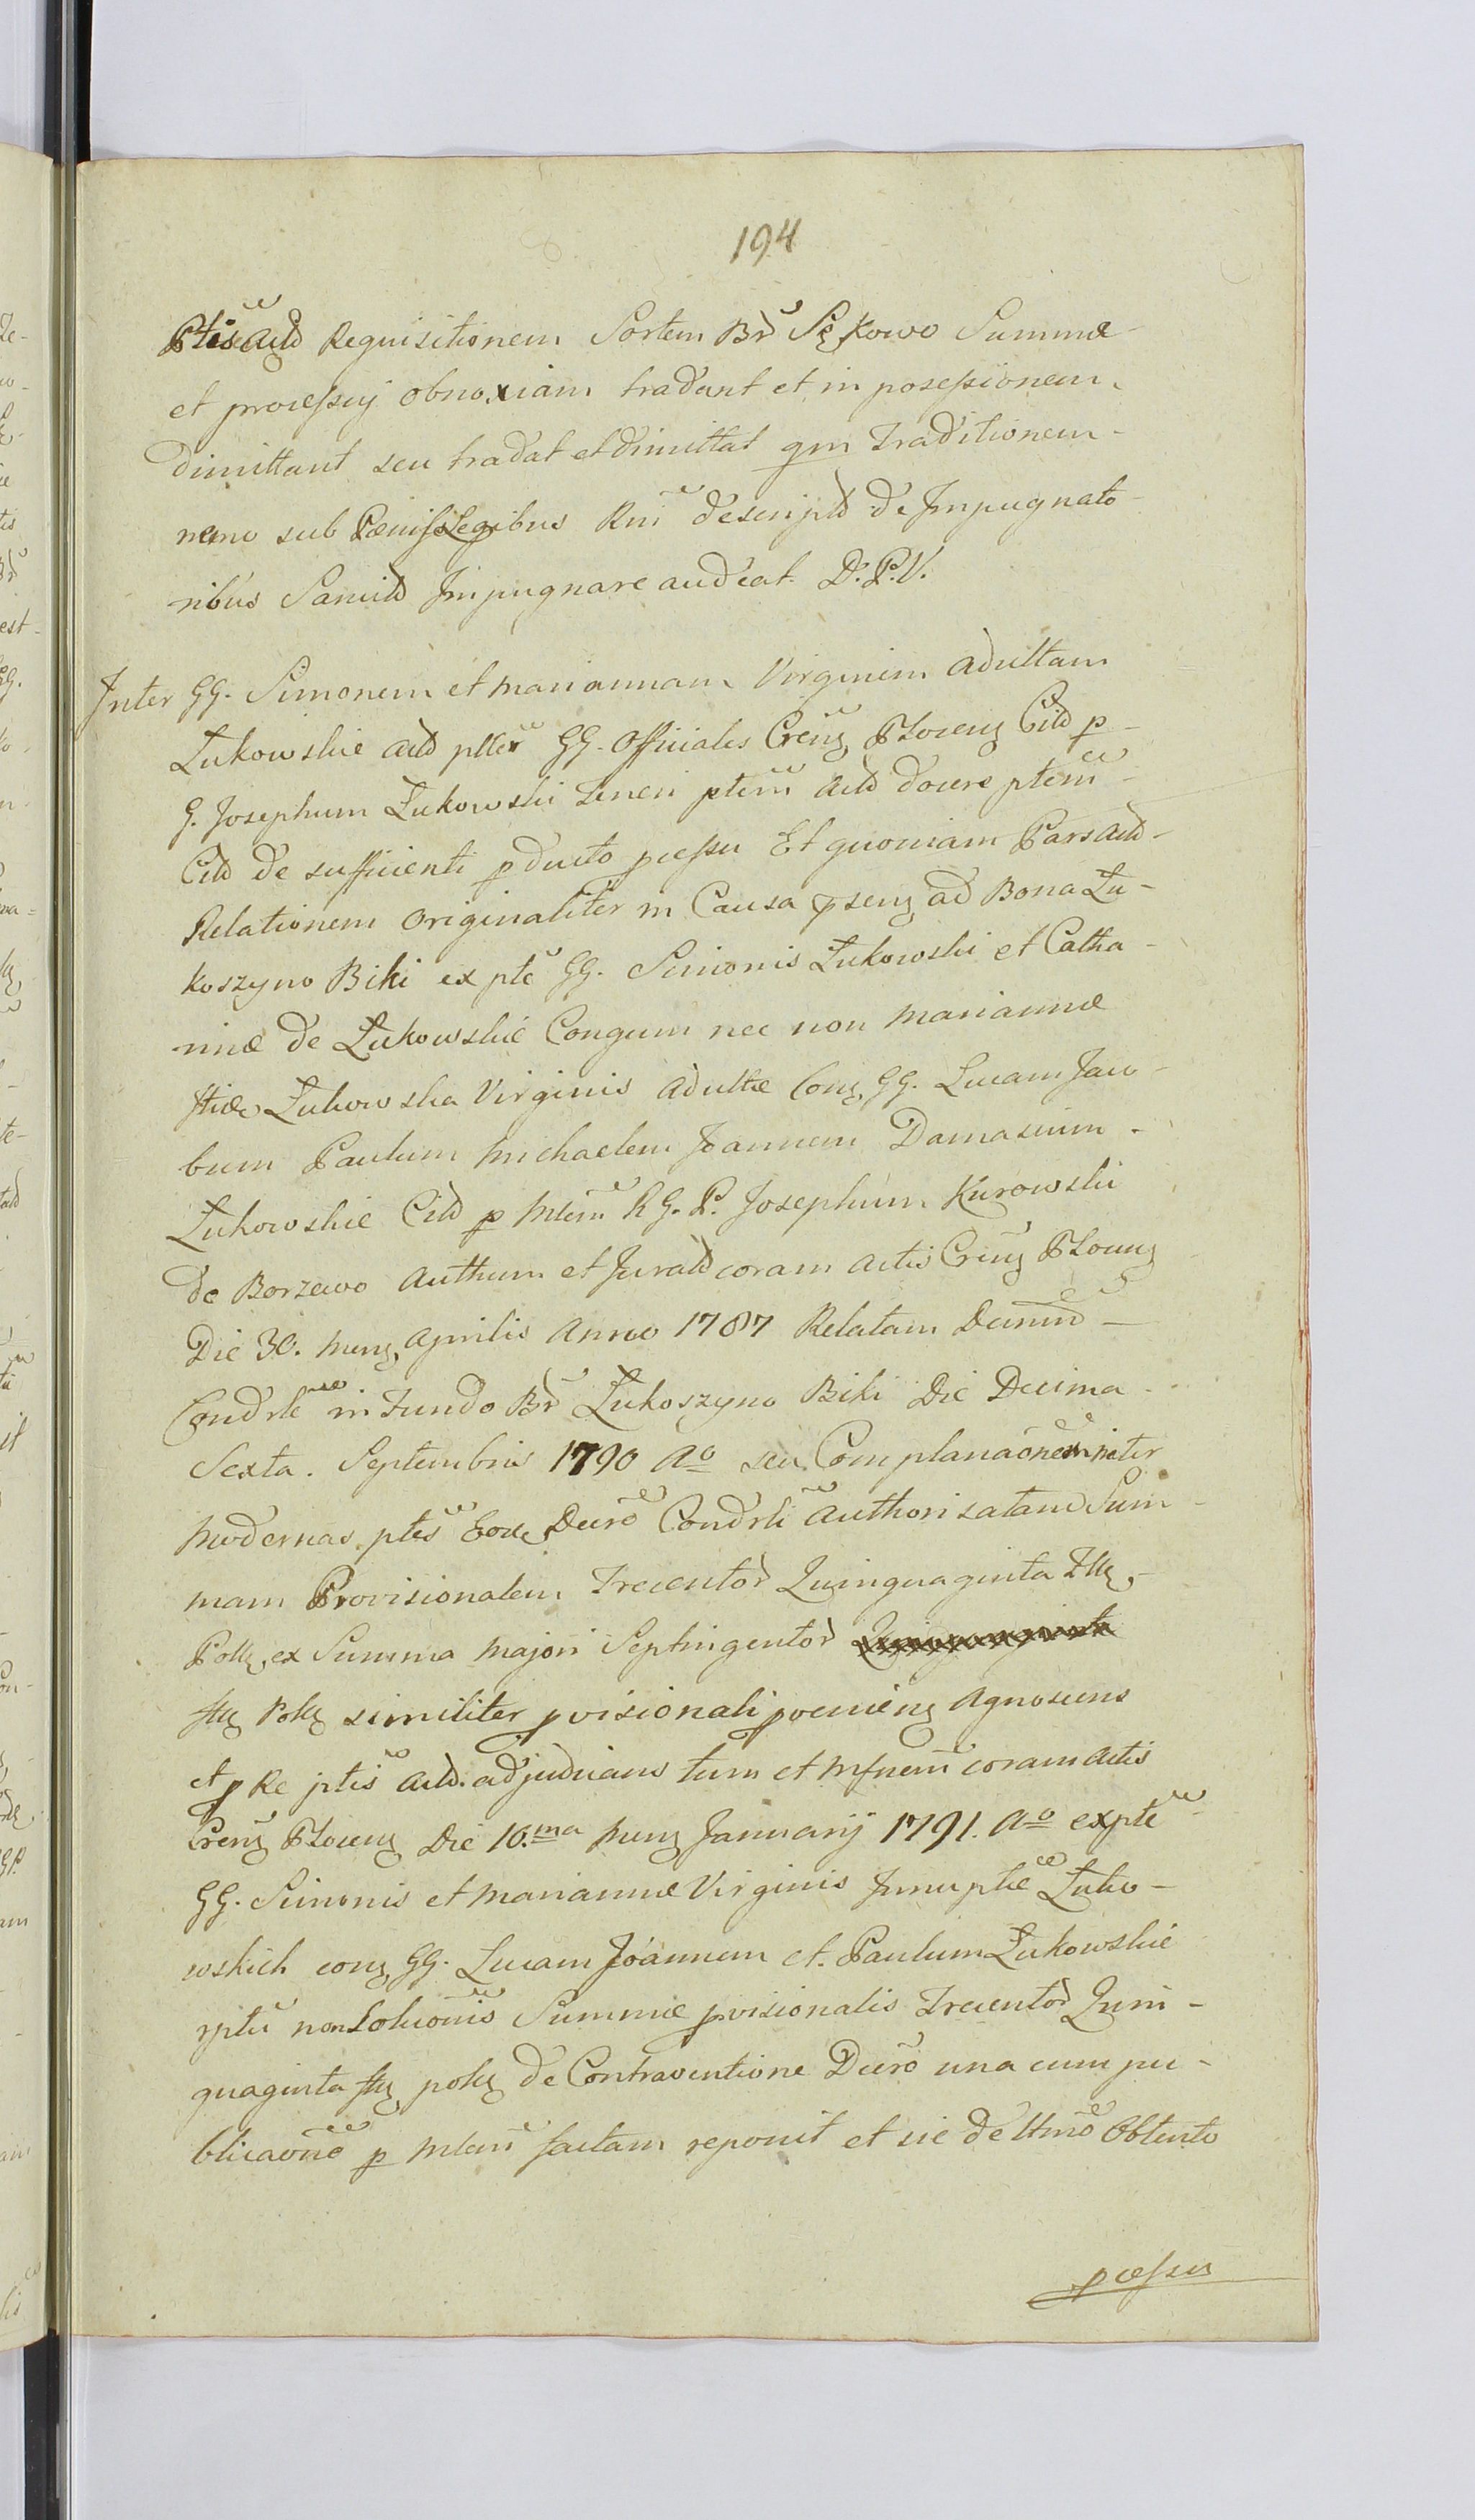 194
Ptis Actd Requisitionem Sortem Br Sękowo Summæ
et processuj obnoxiam tradant et in possessionem
dimittant seu tradat et dimittat qm Traditionem
nemo sub Pænis Legibus Rni descriptd de Impugnato
ribus Sancitd Impugnare audeat. D. P. V.
Inter GG. Simonem et Mariannam Virginem adultam
Łukowskie Actd plter GG. Officiales Crenz Płocenz Citd p
G. Josephum Łukowski Teneri ptem Actd docere ptem
Citd de sufficienti pducto pcessu Et quoniam Pars Actd
Relationem Originaliter in Causa psenz ad Bona Łu-
koszyno Biki ex pte GG. Simonis Łukowski et Catha-
rinæ de Łukowskie Conjgum nec non Mariannæ
Łukowska Virginis adultæ Conz GG. Lucam Jaco-
bum Paulum Michaelem Joannem Damascium
Łukowskie Citd p Mlem RG. P. Josephum Kurowski
de Borzewo Authum et Juratd coram Actis Crenz Płocenz
Die 30. Menz Aprilis Anno 1787 Relatam Decrum
Condrle in Fundo Br Łukoszyno Biki Die Decima
Sexta. Septembris 1790 Ao seu Complanaonem inter
Modernas ptes Eodm Decro Condrli Authorisatam Sum-
mam Provisionalem Trecentor Quinquaginta Fllz
Pollz ex Summa Majori Septingentor
fllz Pollz similiter pvisionali pvenienz Agnoscens
et p Re ptis Actd. adjudicans tum et Mfnem coram Actis
Crenz Płocenz Die 10.ma Menz Januarij 1791. Ao ex pte
GG. Simonis et Mariannæ Virginis Innuptæ Łuko-
wskich conz GG. Lucam Joannem et Paulum Łukowskie
rptu non Soluonis Summæ pvisionalis Trecentor Quin-
quaginta fllz pollz de Contraventione Decro una cum pu-
blicaone p Mlem factam reponit et sic de Ltmo Obtento
pcessu